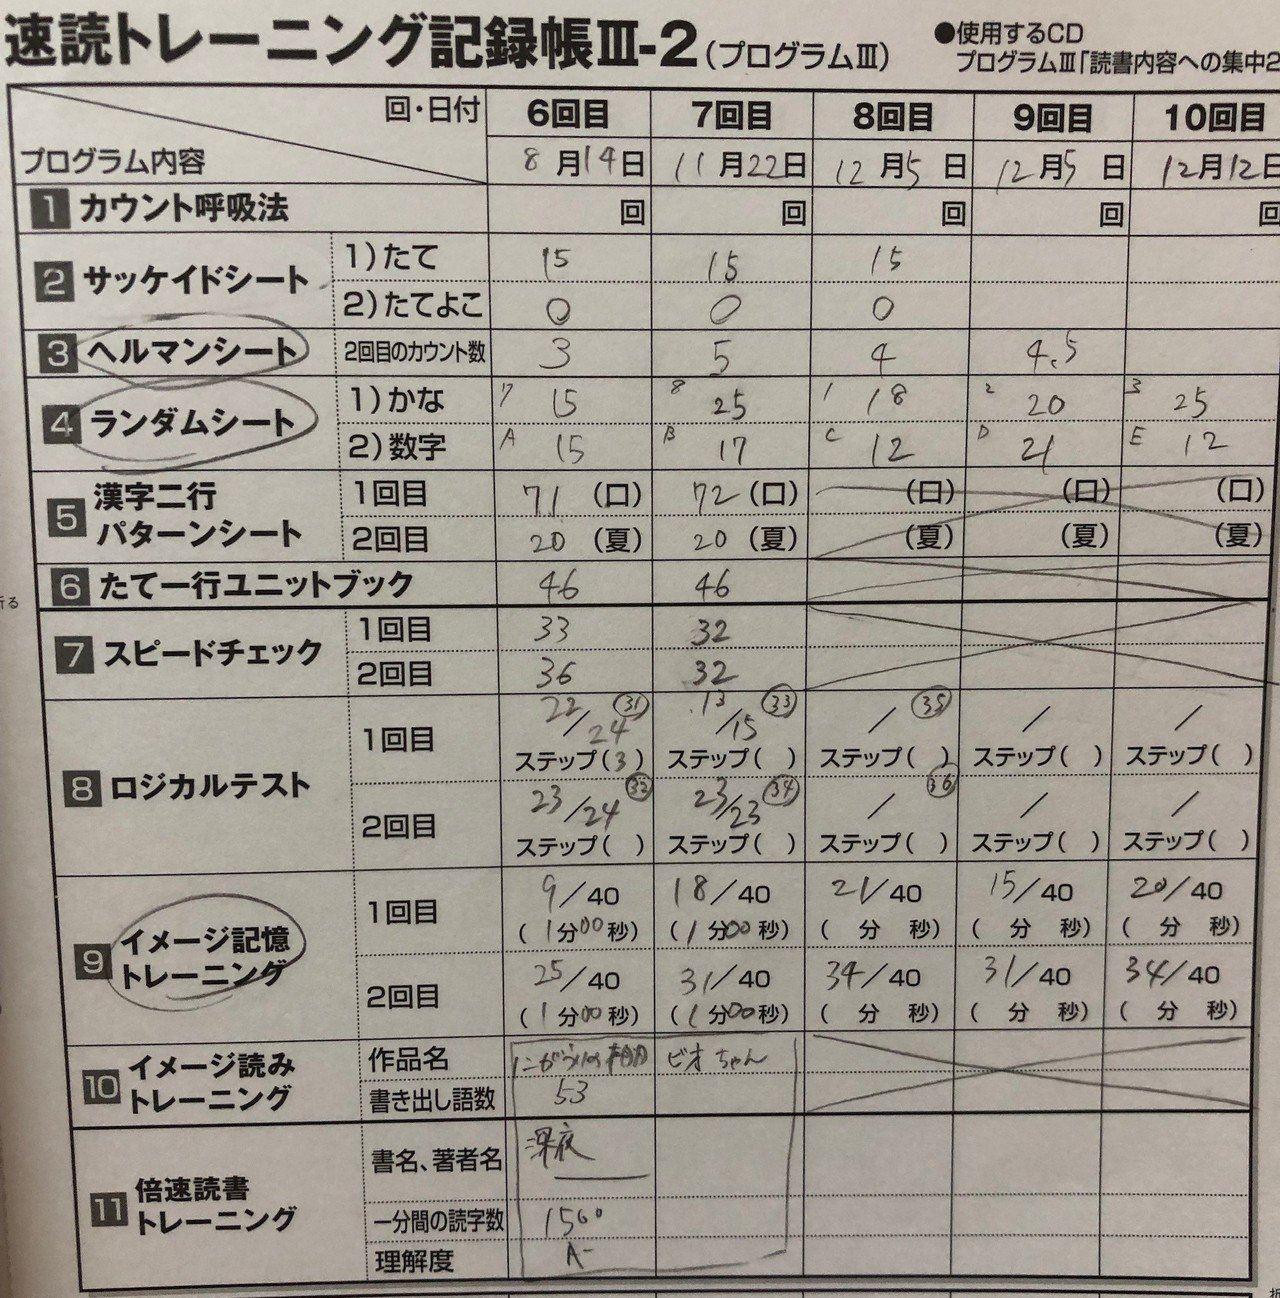 速読トレーニング記録帳Ⅲ-2(プログラムⅢ)
●使用するCD
プログラムⅢ「読書内容への集中2
回・日付 6回目 7回目 8回目 9回目 10回目
プログラム内容 8月14日 11月22日 12月5日 12月5日 12月12日
1 カウント呼吸法 回 回 回 回 回
2 サッケイドシート 1)たて 15 15 15
2)たてよこ 0 0 0
3 ヘルマンシート 2回目のカウント数 3 5 4 4.5
4 ランダムシート 1)かな 7 15 8 25 1 18 2 20 3 25
2)数字 A 15 B 17 C 12 D 21 E 12
5 漢字二行パターンシート 1回目 71(口) 72(口) (口) (口) (口)
2回目 20(夏) 20(夏) (夏) (夏) (夏)
6 たて一行ユニットブック 46 46
7 スピードチェック 1回目 33 32
2回目 36 32
8 ロジカルテスト 1回目 22/24 ㉛ 13/15 ㉝ / ㉟ / /
ステップ(3) ステップ( ) ステップ( ) ステップ( ) ステップ( )
2回目 23/24 ㉜ 23/23 ㉞ / ㊱ / /
ステップ( ) ステップ( ) ステップ( ) ステップ( ) ステップ( )
9 イメージ記憶トレーニング 1回目 9/40 18/40 21/40 15/40 20/40
(1分00秒) (1分00秒) ( 分 秒) ( 分 秒) ( 分 秒)
2回目 25/40 31/40 34/40 31/40 34/40
(1分00秒) (1分00秒) ( 分 秒) ( 分 秒) ( 分 秒)
10 イメージ読みトレーニング 作品名 ピオちゃん
書き出し語数 53
11 倍速読書トレーニング 書名、著者名 深夜
一分間の読字数 1500
理解度 A-